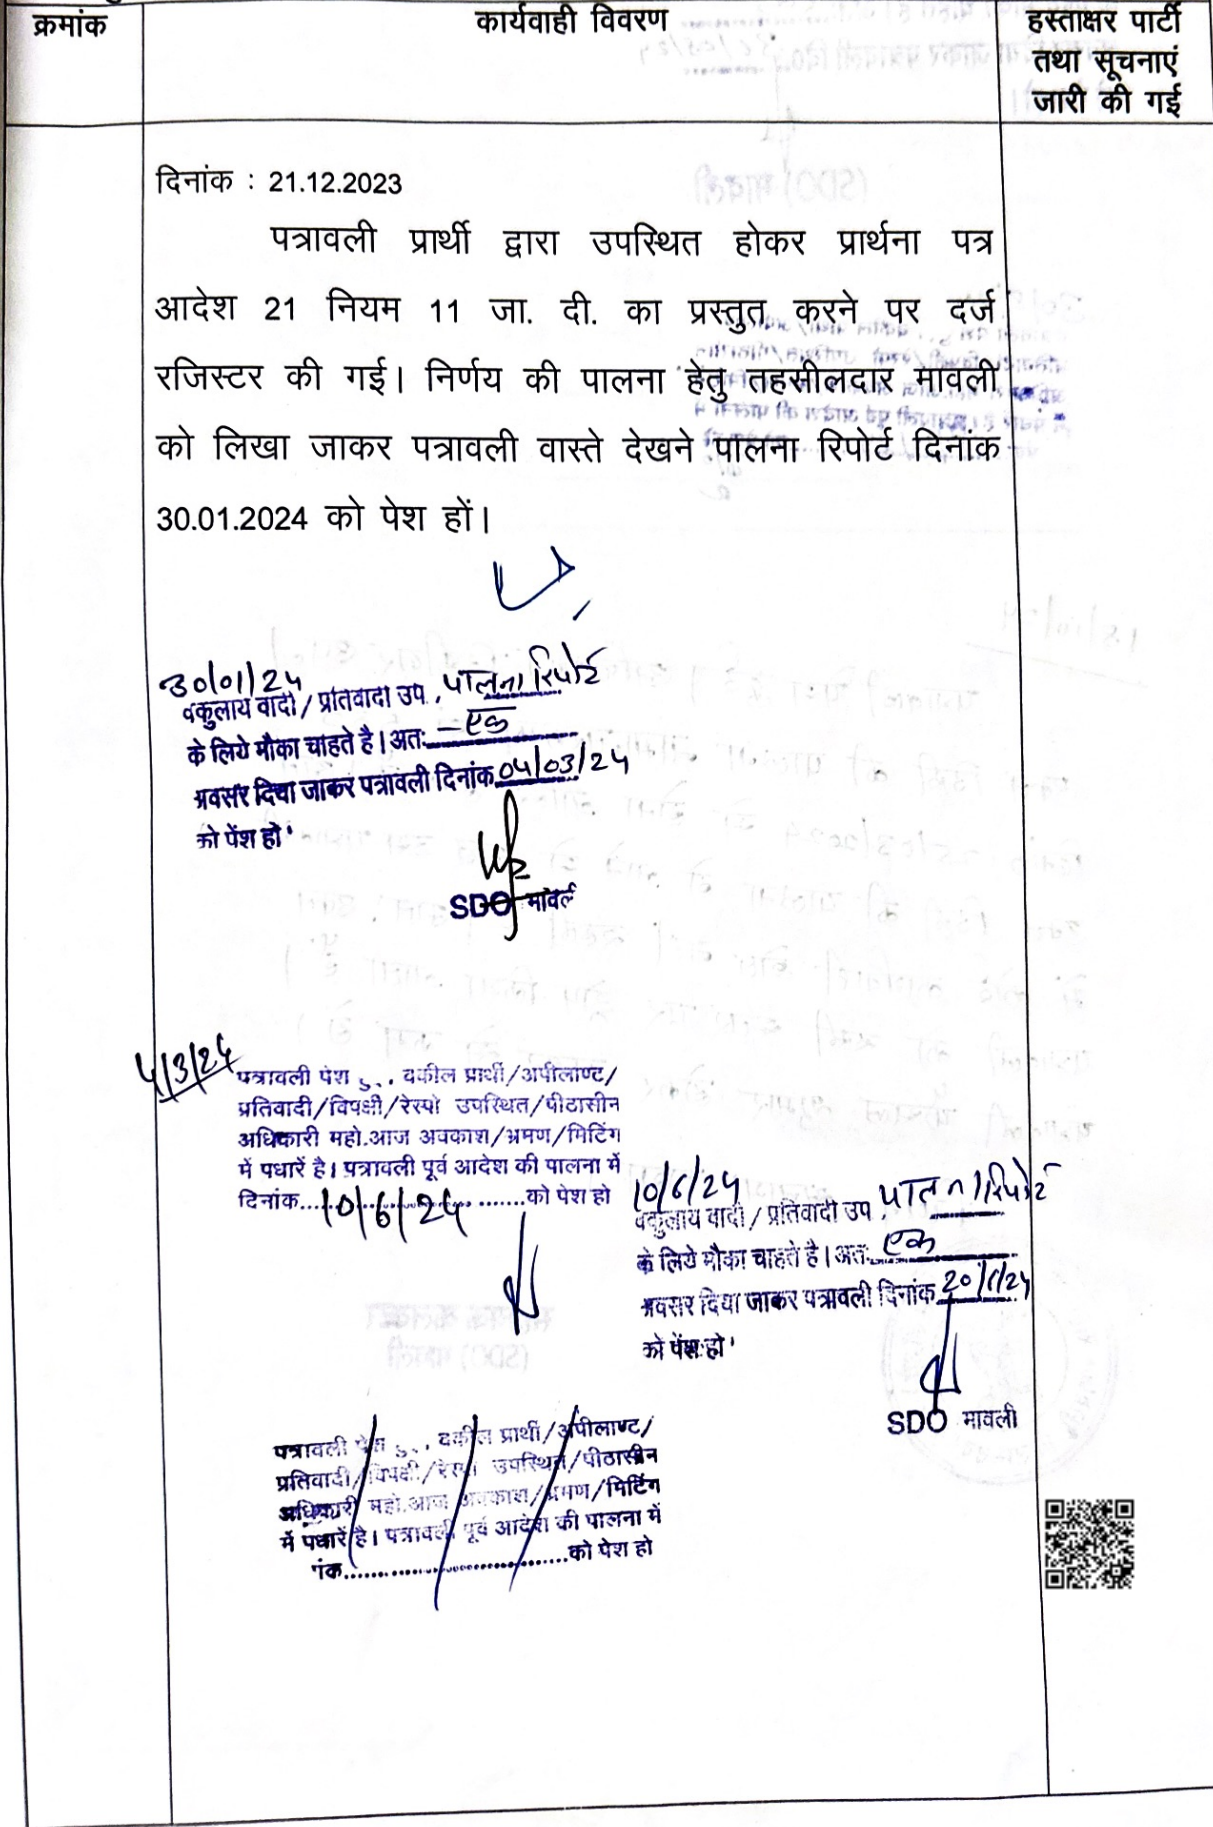 क्रमांक
कार्यवाही विवरण
हस्ताक्षर पार्टी
तथा सूचनाएं
जारी की गई
दिनांक : 21.12.2023
पत्रावली प्रार्थी द्वारा उपस्थित होकर प्रार्थना पत्र
आदेश 21 नियम 11 जा. दी. का प्रस्तुत करने पर दर्ज
रजिस्टर की गई। निर्णय की पालना हेतु तहसीलदार मावली
को लिखा जाकर पत्रावली वास्ते देखने पालना रिपोर्ट दिनांक
30.01.2024 को पेश हों।
30/01/24
वकुलाय वादी / प्रतिवादी उप. पालना रिपोर्ट
के लिये मौका चाहते है। अतः एक
अवसर दिया जाकर पत्रावली दिनांक 04/03/24
को पेंश हो'
SDO मावली
4/3/24
पत्रावली पेश हु.. वकील प्रार्थी/अपीलाण्ट/
प्रतिवादी/विपक्षी/रेस्पो उपस्थित/पीठासीन
अधिकारी महो.आज अवकाश/भ्रमण/मिटिंग
में पधारें है। पत्रावली पूर्व आदेश की पालना में
दिनांक....10/6/24....को पेश हो
10/6/24
वकुलाय वादी / प्रतिवादी उप पालना रिपोर्ट
के लिये मौका चाहते है। अतः एक
अवसर दिया जाकर पत्रावली दिनांक 20/6/24
को पेंश हो'
SDO मावली
पत्रावली पेश हु.. वकील प्रार्थी/अपीलाण्ट/
प्रतिवादी/विपक्षी/रेस्पो उपस्थित/पीठासीन
अधिकारी महो.आज अवकाश/भ्रमण/मिटिंग
में पधारें है। पत्रावली पूर्व आदेश की पालना में
नांक..............................को पेश हो